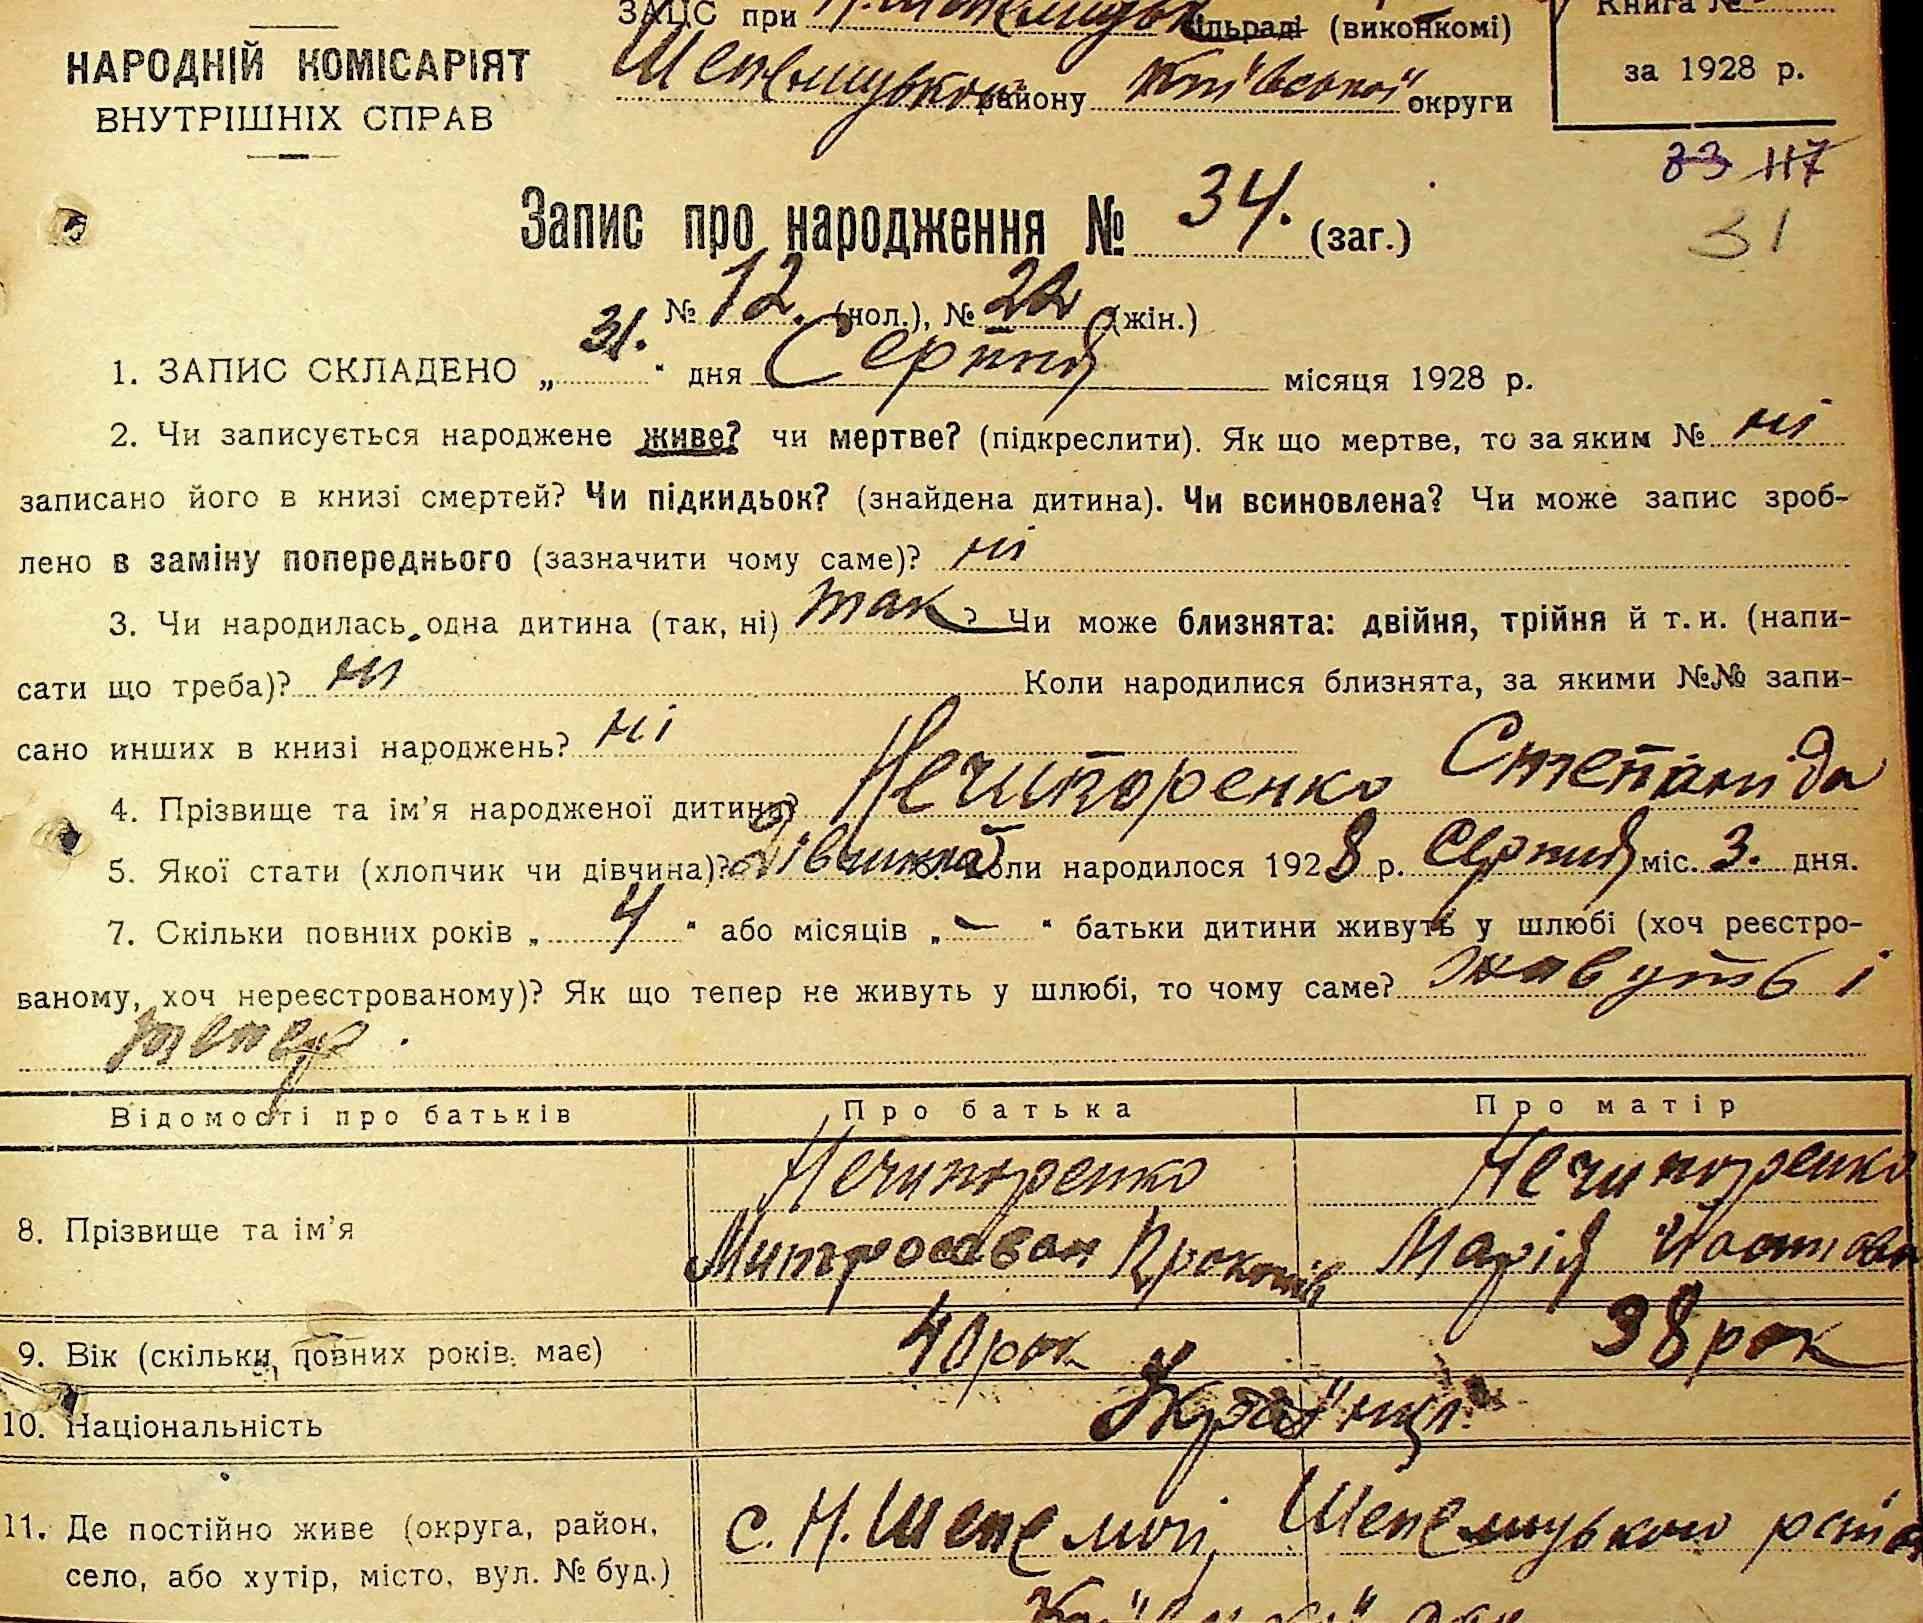 ЗАЦС при Н. Шепелицьк сільраді (виконкомі)
Книга №
НАРОДНІЙ КОМІСАРІЯТ
ВНУТРІШНІХ СПРАВ
Шепелицького району Київської округи
за 1928 р.
33 117
31
Запис про народження № 34. (заг.)
№ 12. (чол.), № 22 (жін.)
1. ЗАПИС СКЛАДЕНО „31.“ дня Серпня місяця 1928 р.
2. Чи записується народжене живе? чи мертве? (підкреслити). Як що мертве, то за яким № ні
записано його в книзі смертей? Чи підкидьок? (знайдена дитина). Чи всиновлена? Чи може запис зроб-
лено в заміну попереднього (зазначити чому саме)? ні
3. Чи народилась одна дитина (так, ні) так? Чи може близнята: двійня, трійня й т. и. (напи-
сати що треба)? ні Коли народилися близнята, за якими №№ запи-
сано инших в книзі народжень? ні
4. Прізвище та ім'я народженої дитини? Нечипоренко Степанида
5. Якої стати (хлопчик чи дівчина)? Дівчина 6. Коли народилося 1928 р. Серпня міс. 3. дня.
7. Скільки повних років „4“ або місяців „–“ батьки дитини живуть у шлюбі (хоч реєстро-
ваному, хоч нереєстрованому)? Як що тепер не живуть у шлюбі, то чому саме? живуть і
тепер.
Відомості про батьків Про батька Про матір
Нечипоренко Нечипоренко
8. Прізвище та ім'я Митрофан Прокопів Марія
9. Вік (скільки повних років має) 40 рок 38 рок
10. Національність Українці
11. Де постійно живе (округа, район, с. Н. Шепеличі, Шепелицького району
село, або хутір, місто, вул. № буд.)
Київської окр